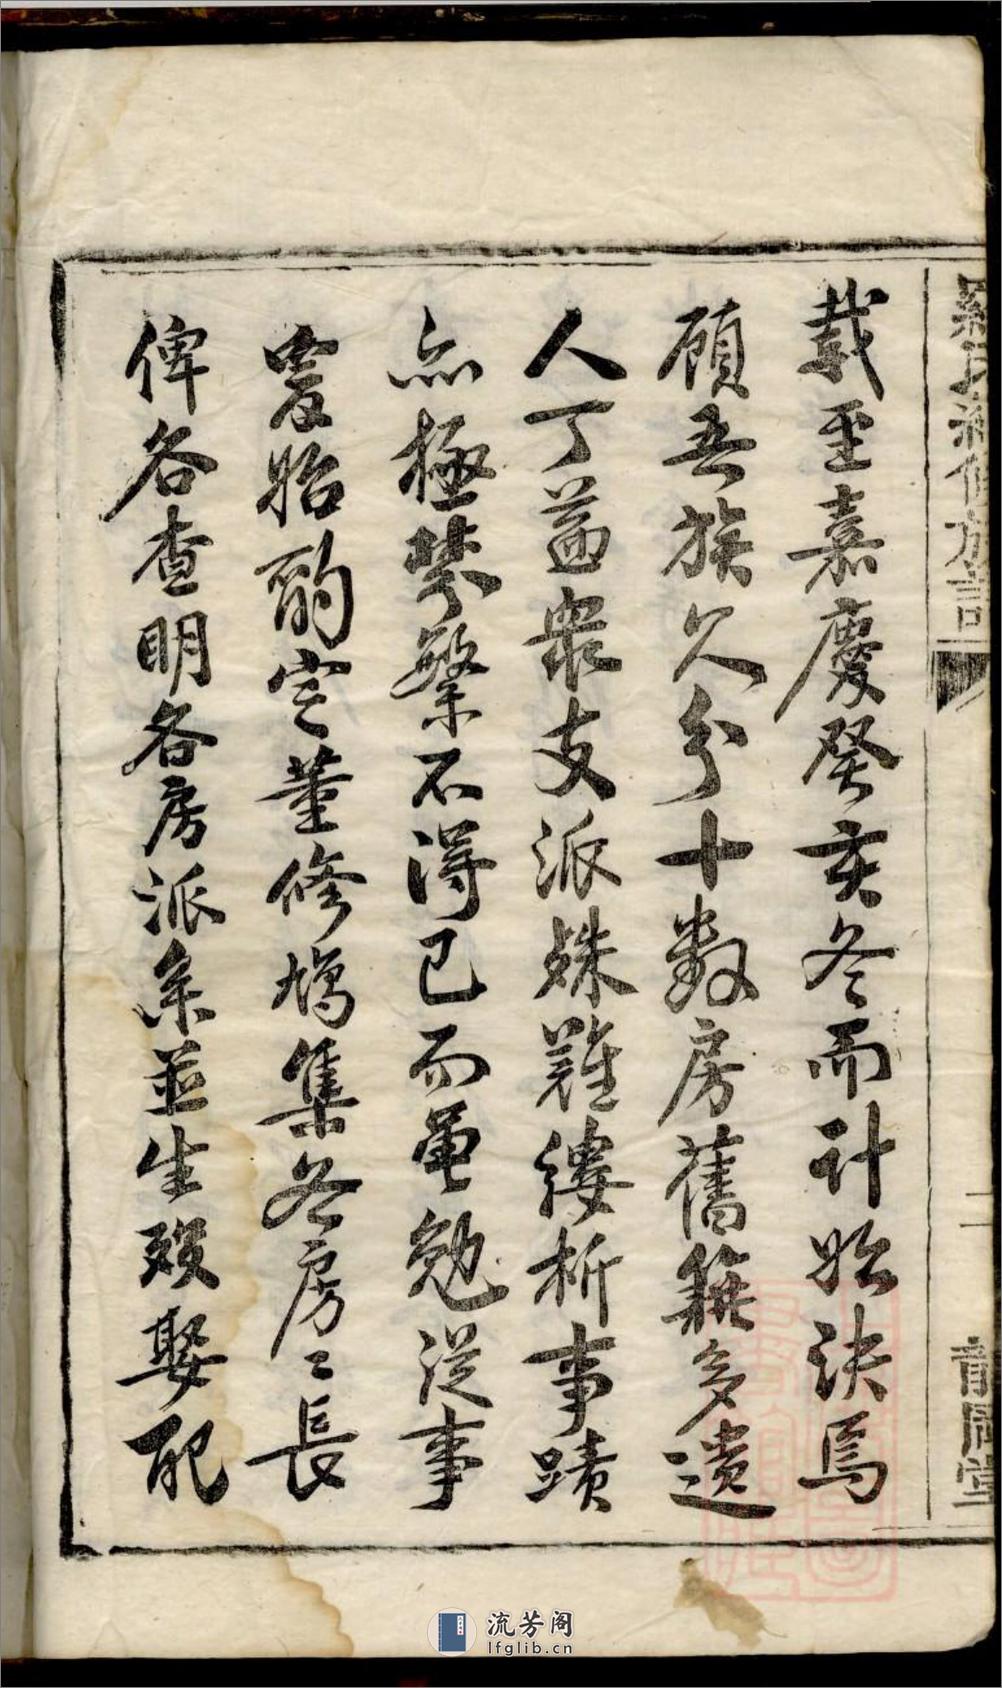 羅氏續修族譜
二
載至嘉慶癸亥冬而計始決焉
顧吾族久分十數房舊籍多遺
人丁益眾支派殊難縷析事蹟
亦極繁不得已而黽勉從事
爰始酌定董修鳩集各房〻長
俾各查明各房派系並生歿娶配
流芳阁
lfglib.cn